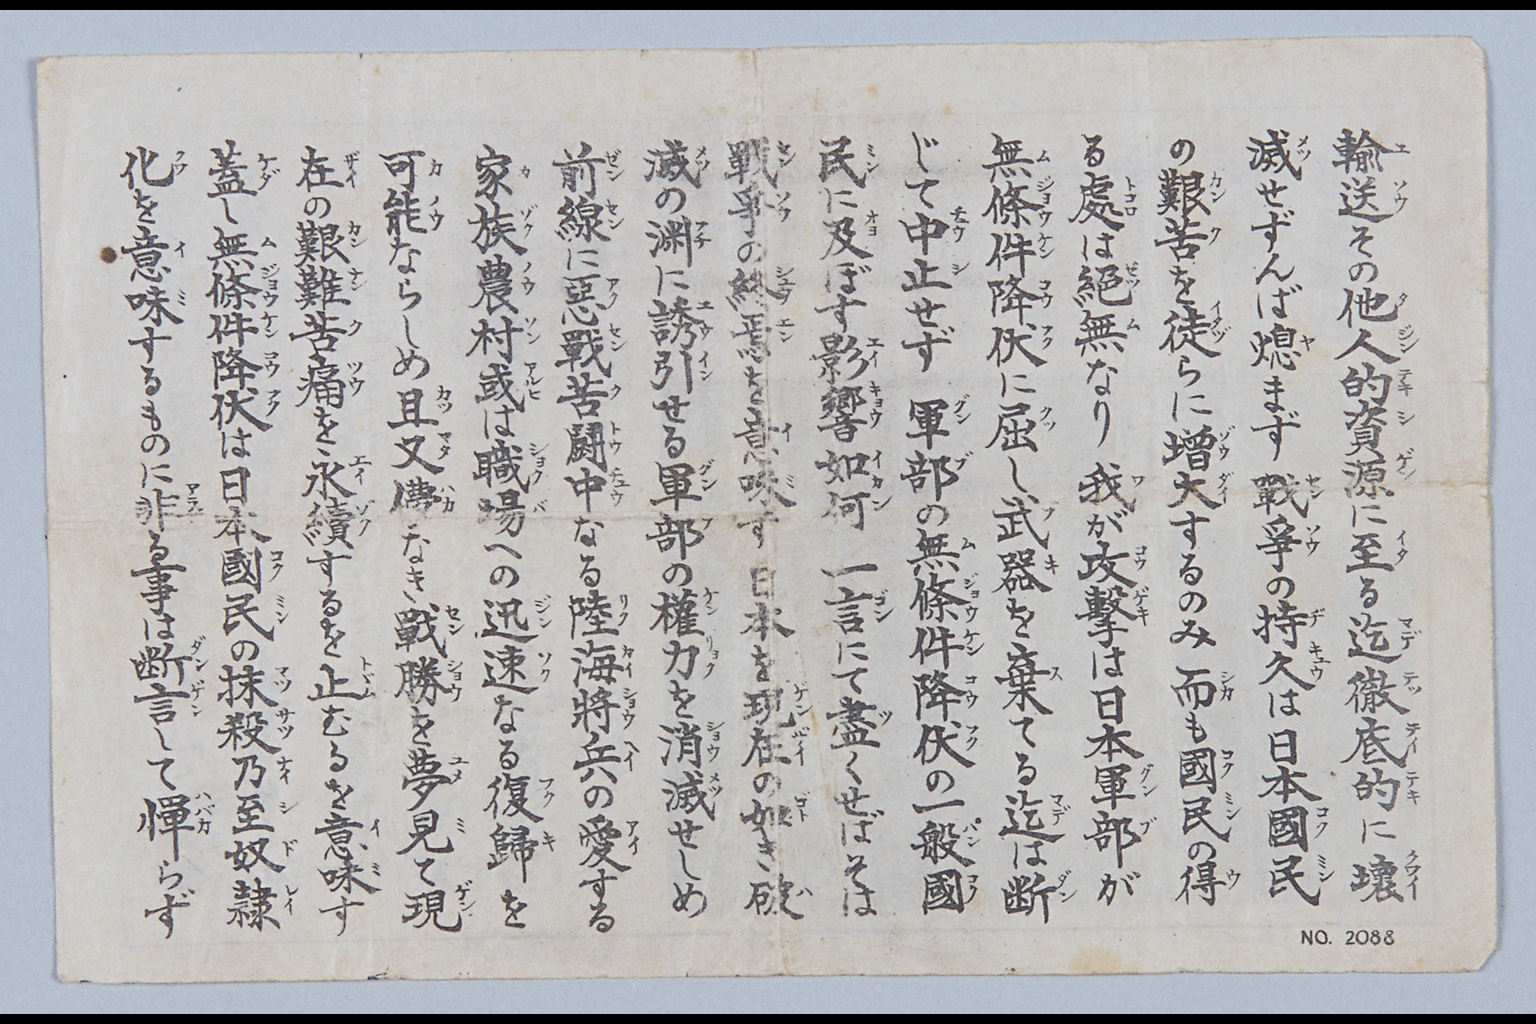 輸送その他人的資源に至る迄徹底的に壊
滅せずんば熄まず 戰爭の持久は日本國民
の艱苦を徒らに増大するのみ 而も國民の得
る處は絕無なり 我が攻擊は日本軍部が
無條件降伏に屈し武器を棄てる迄は断
じて中止せず 軍部の無條件降伏の一般國
民に及ぼす影響如何 一言にて盡くせばそは
戰爭の終焉を意味す 日本を現在の如き破
滅の渊に誘引せる軍部の權力を消滅せしめ
前線に惡戰苦鬪中なる陸海將兵の愛する
家族農村或は職場への迅速なる復歸を
可能ならしめ且又儚なき戰勝を夢見て現
在の艱難苦痛を永續するを止むるを意味す
蓋し無條件降伏は日本國民の抹殺乃至奴隸
化を意味するものに非る事は断言して憚らず
NO. 2088